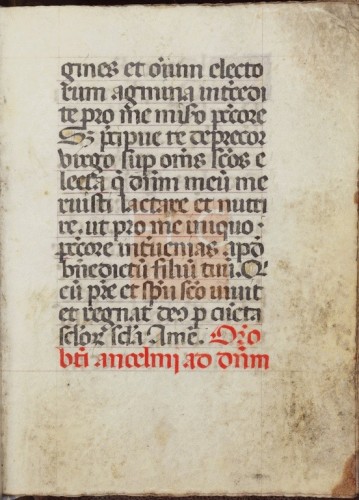 gines et om̄ium electo
rum agmina intercedi
te pro me misero pcc̄ore
Set p̄cipue te deprecor
virgo sup om̄s sc̄os e
lecta q̄ dn̄m meū me
ruisti lactare et nutri
re. ut pro me iniquo
pcc̄ore interuenias apd̄
bn̄edictū filiū tuū. Q
cū pr̄e et sp̄u sc̄o uiuit
et regnat deo p cūcta
sc̄lor̄ sc̄la Amē. Or̄o
bt̄i ancelmi ad dn̄m